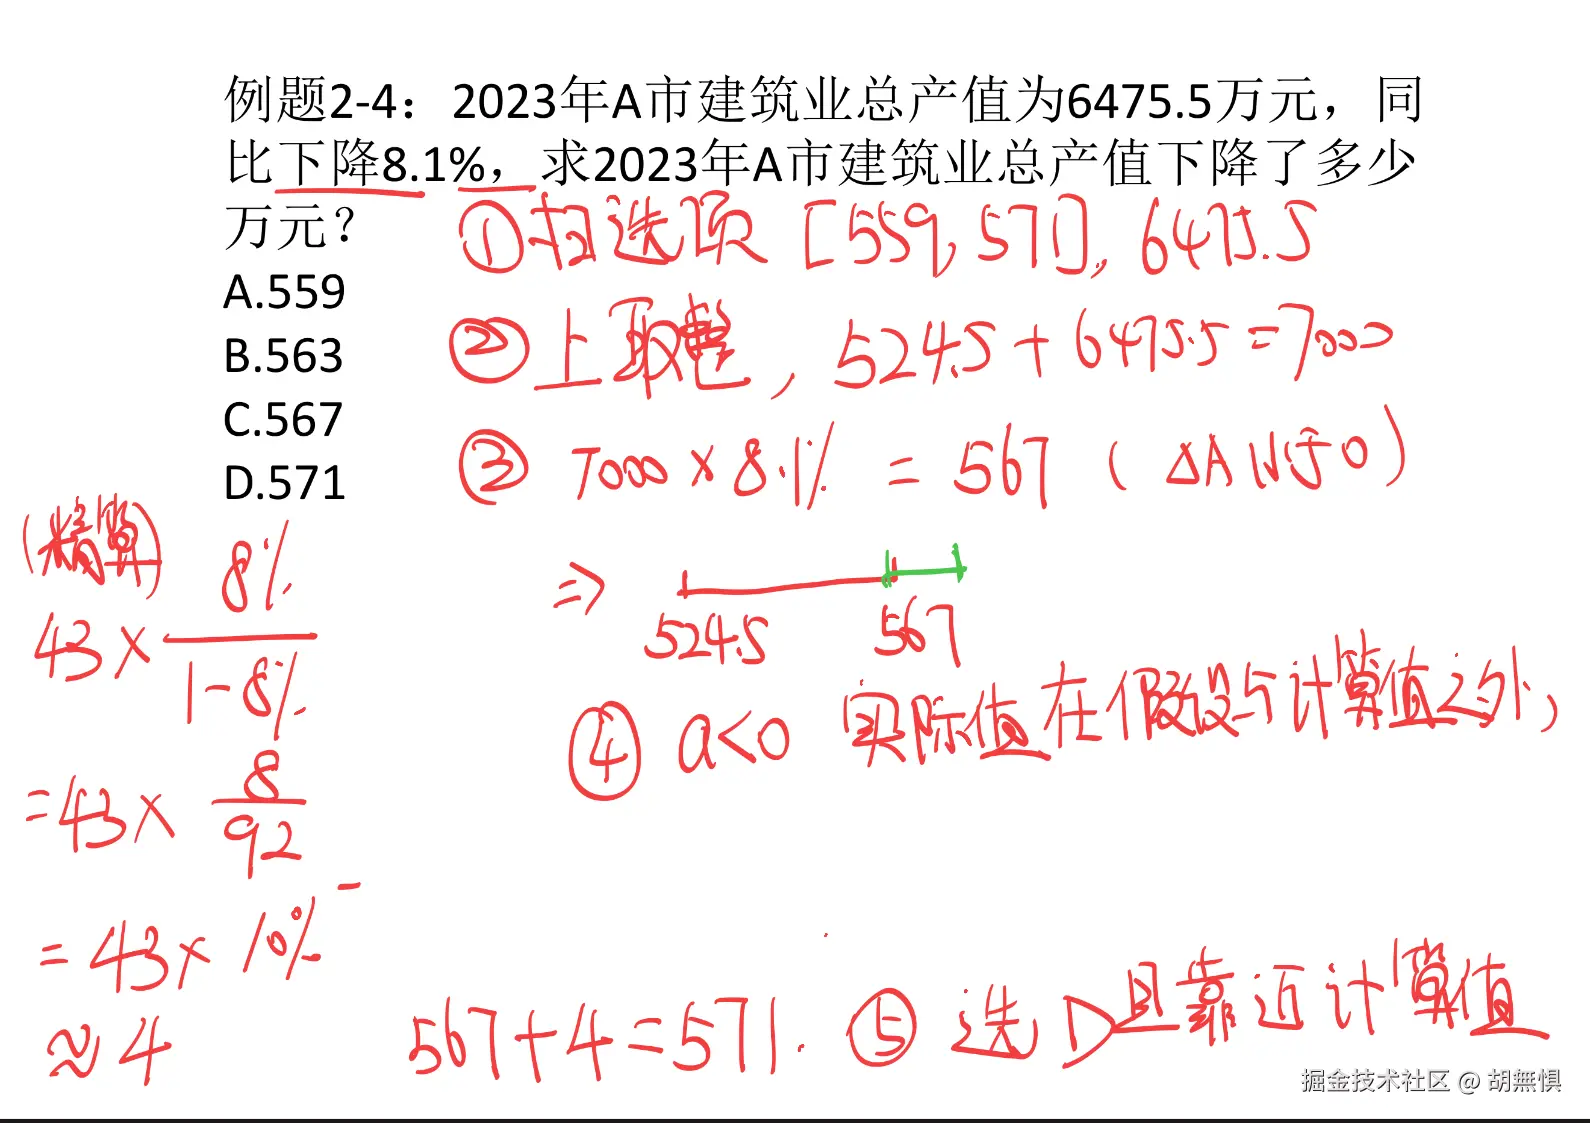 例题2-4：2023年A市建筑业总产值为6475.5万元，同
比下降8.1%，求2023年A市建筑业总产值下降了多少
万元？
A.559
B.563
C.567
D.571
①扫选项 [559,571], 6475.5
②上取整, 524.5+6475.5=7000
③ 7000×8.1% = 567 (ΔA 小于0)
=> 524.5 567
④ a<0 实际值在假设与计算值之外,
且靠近计算值
⑤ 选D
(精算)
43× 8%/1-8%
=43× 8/92
=43×10%⁻
≈4
567+4=571.
掘金技术社区 @ 胡無惧